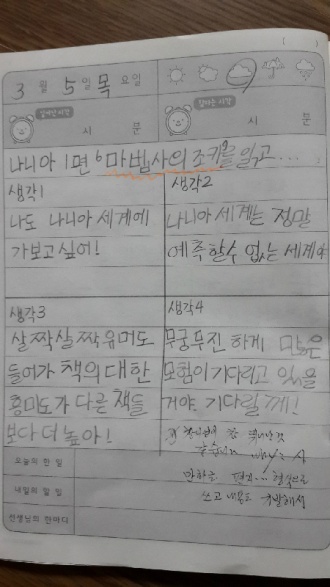 3 월 5 일 목 요일
일어난시각
시 분
잠자는시각
시 분
나니아 1편 '마법사의 조카'를 읽고...
생각1
나도 나니아 세계에
가보고싶어!
생각2
나니아 세계는 정말
예측할수 없는 세계야
생각3
살짝살짝 유머도
들어가 책의 대한
흥미도가 다른 책들
보다 더 높아!
생각4
무궁무진 하게 많은
모험이 기다리고 있을
거야. 기다릴께!
오늘의 한 일
내일의 할 일
선생님의 한마디
만화로
쓰고